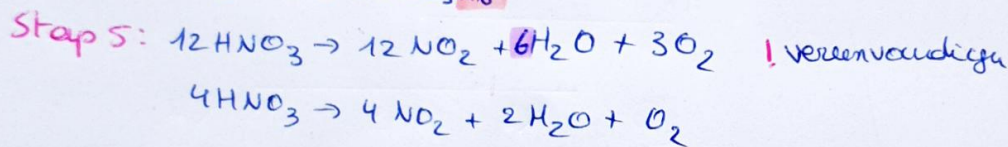 Stap 5: 12 HNO₃ → 12 NO₂ + 6H₂O + 3O₂ ! vereenvoudigen
4HNO₃ → 4 NO₂ + 2H₂O + O₂